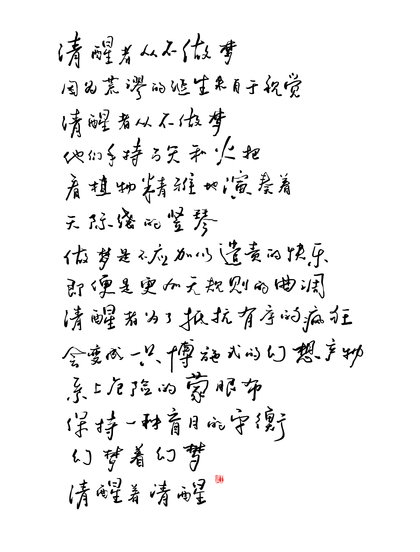 清醒者从不做梦
因为荒谬的诞生来自于视觉
清醒者从不做梦
他们手持弓矢和火把
看植物精准地演奏着
天际线的竖琴
做梦是不应加以谴责的快乐
即便是更加无规则的曲调
清醒者为了抵抗有序的疯狂
会变成一只博施式的幻想产物
系上危险的蒙眼布
保持一种盲目的平衡
幻梦着幻梦
清醒着清醒